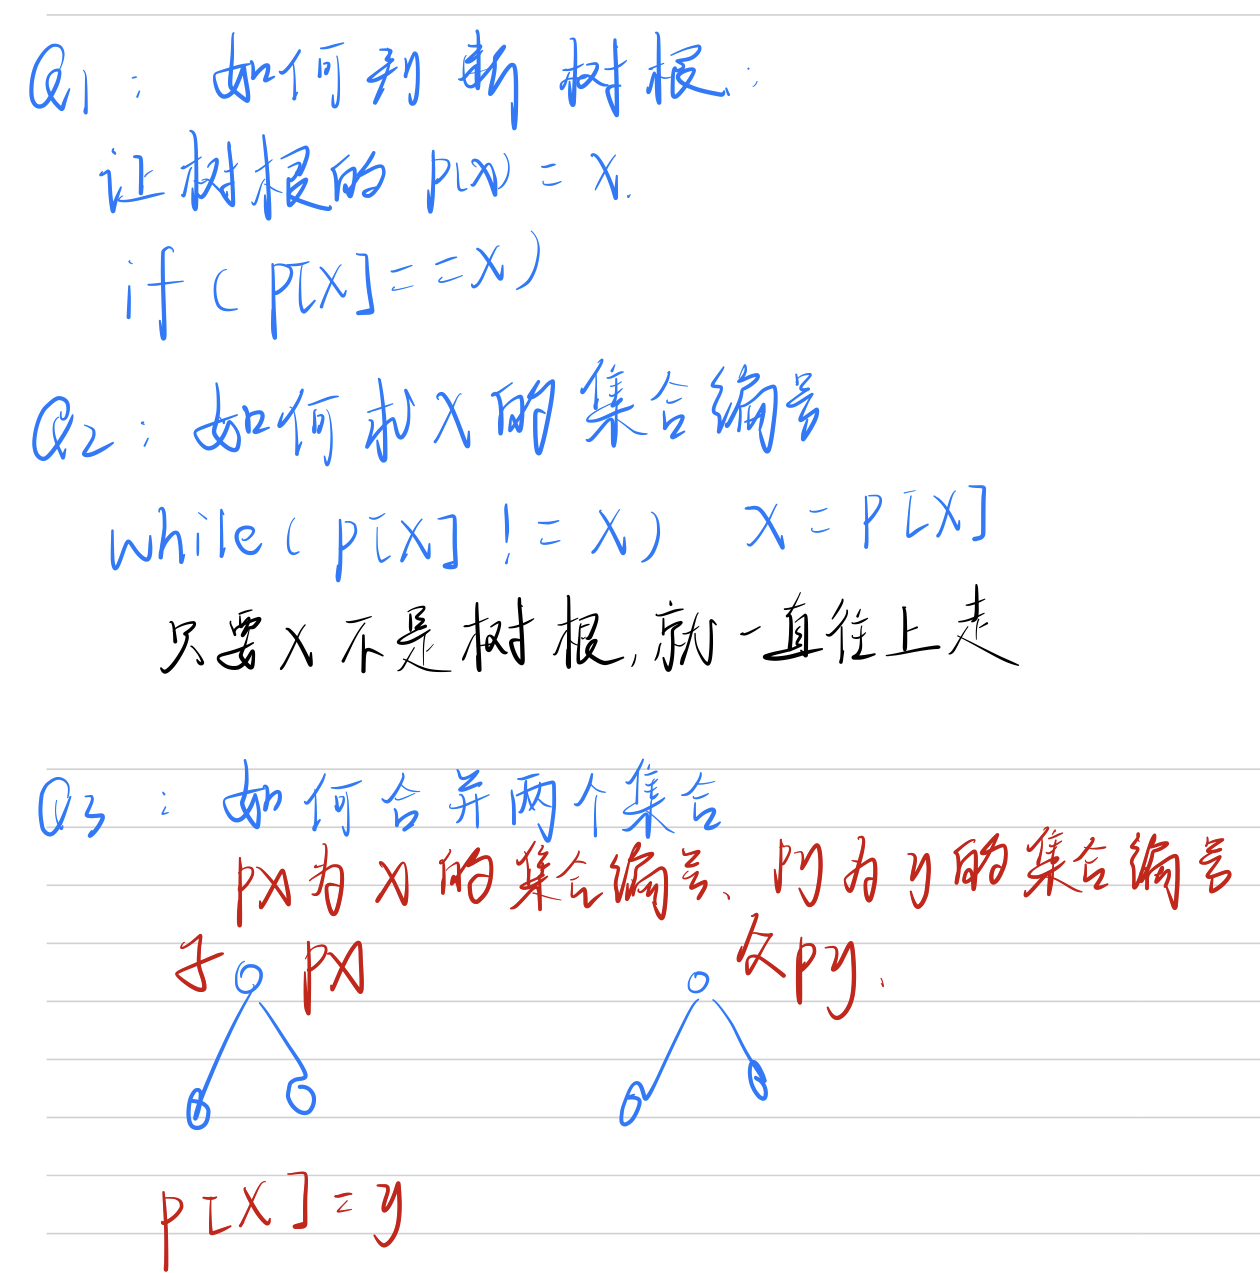 Q1: 如何判断树根:
让树根的 p(x) = x.
if ( p[x] == x )
Q2: 如何求x的集合编号
while ( p[x] != x ) x = p[x]
只要x不是树根,就一直往上走
Q3: 如何合并两个集合
px为x的集合编号、py为y的集合编号
子 px 父 py.
p[x] = y